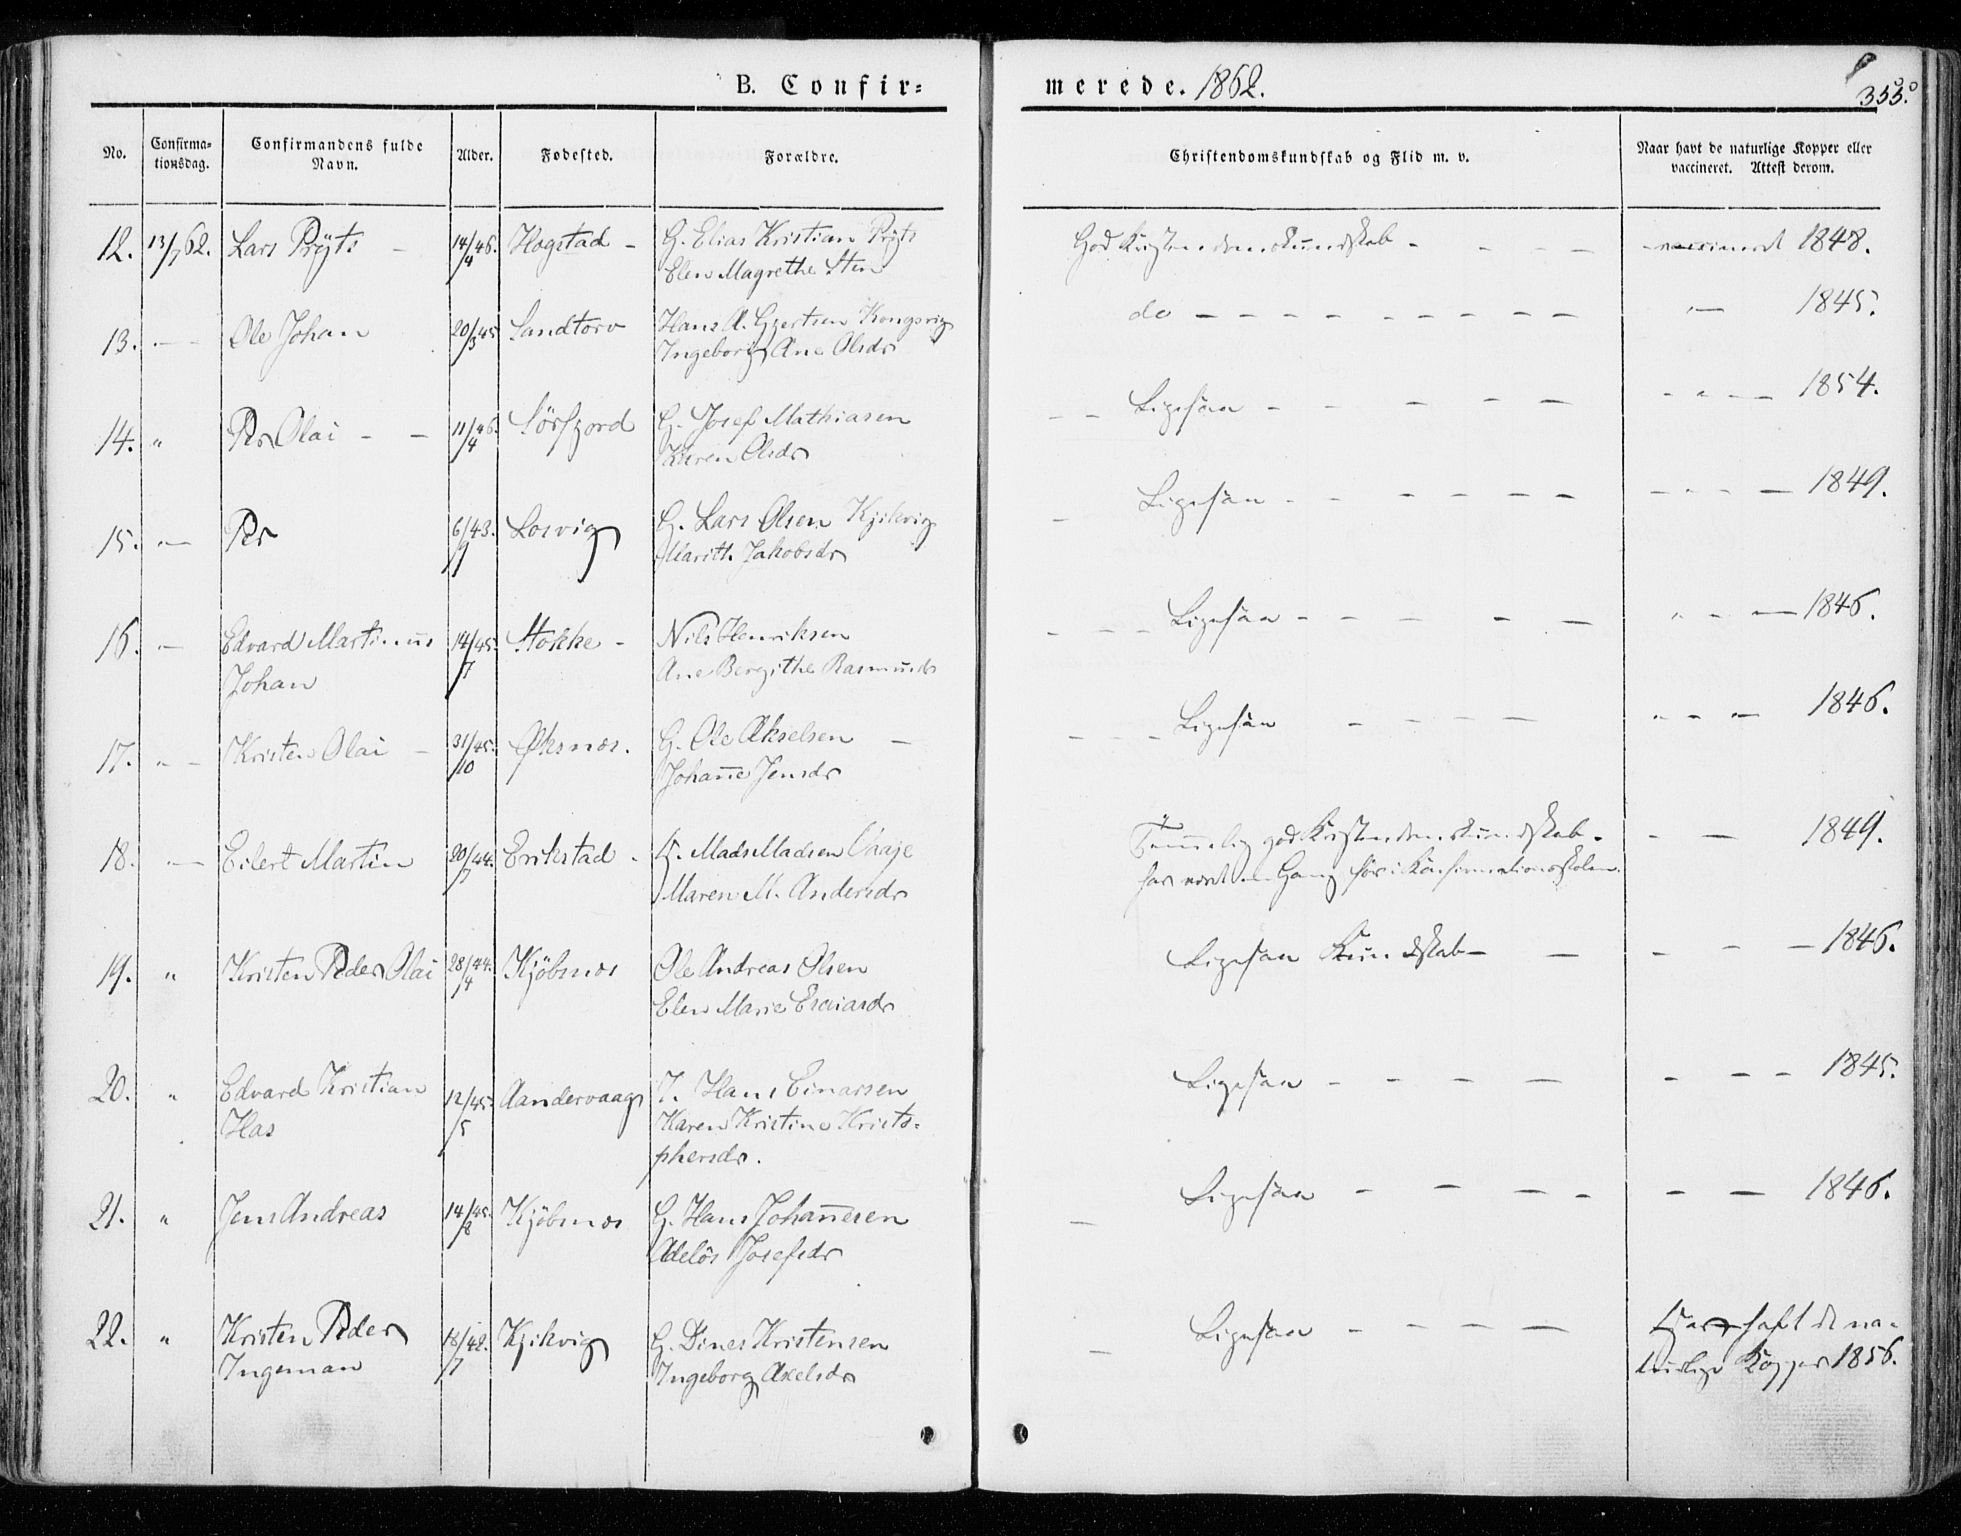 B. Confir=
merede. 1862.
355.
No.
Confirma=
tionsdag.
Confirmandens fulde
Navn.
Alder.
Fødested.
Forældre.
Christendomskundskab og Flid m. v.
Naar havt de naturlige Kopper eller
vaccineret. Attest derom.
12. 13/7 62. Lars Prÿts – 14/4 46. Hogstad – G. Elias Kristian Prÿts God Kristendomskundskab – – – – – vaccineret 1848.
Elen Magrethe Sten
13. – – Ole Johan 20/3 45 Sandtorv Hans A. Gjertsen Kongsvig do – – – – – – – – – " – 1845.
Ingeborg Ane Olsdr
14. " Per Olai – – 11/4 46. Sörfjord G. Josef Mathiasen – – Ligesaa – – – – – – " – – 1854.
Karen Olsdr
15. " – Per 6/9 43. Losvig G. Lars Olsen Kjikvig – Ligesaa – – – – – – – " – – 1849.
Marith Jakobsdr
16. " – Edvard Martinus 14/7 45. Stokke – Nils Henriksen – – – Ligesaa – – – – – – " – – – 1846.
Johan Ane Bergithe Rasmusdr
17. " – Kristen Olai – 31/10 45. Øksnæs. G. Ole Akselsen – – – – Ligesaa – – – – " – " – 1846.
Johanne Jensdr
18. – Eilert Martin 20/7 44. Erikstad – Mads Madsen Vaaje Temmelig god Kristendomskundskab – – – 1849.
Maren M. Andersdr har været en Gang før i Konfirmationsskolen.
19. " Kristen Peder Olai 28/4 44. Kjöbnæs Ole Andreas Olsen Ligesaa Kundskab – – – – – 1846.
Elen Marie Esaiasdr
20. " Edvard Kristian 12/5 45. Aandervaag I. Hans Einarsen Ligesaa – – – – – – – 1845.
Has Karen Kristine Kristo=
phersdr.
21. " Jens Andreas 14/8 45. Kjöbnæs G. Hans Johannesen – Ligesaa – – – – – – 1846.
Adelös Josefsdr
22. " Kristen Peder 18/7 42. Kjikvig G. Dines Kristensen – Ligesaa – – – – Har haft de na-
Ingeman Ingeborg Axelsdr turlige Kopper 1856.